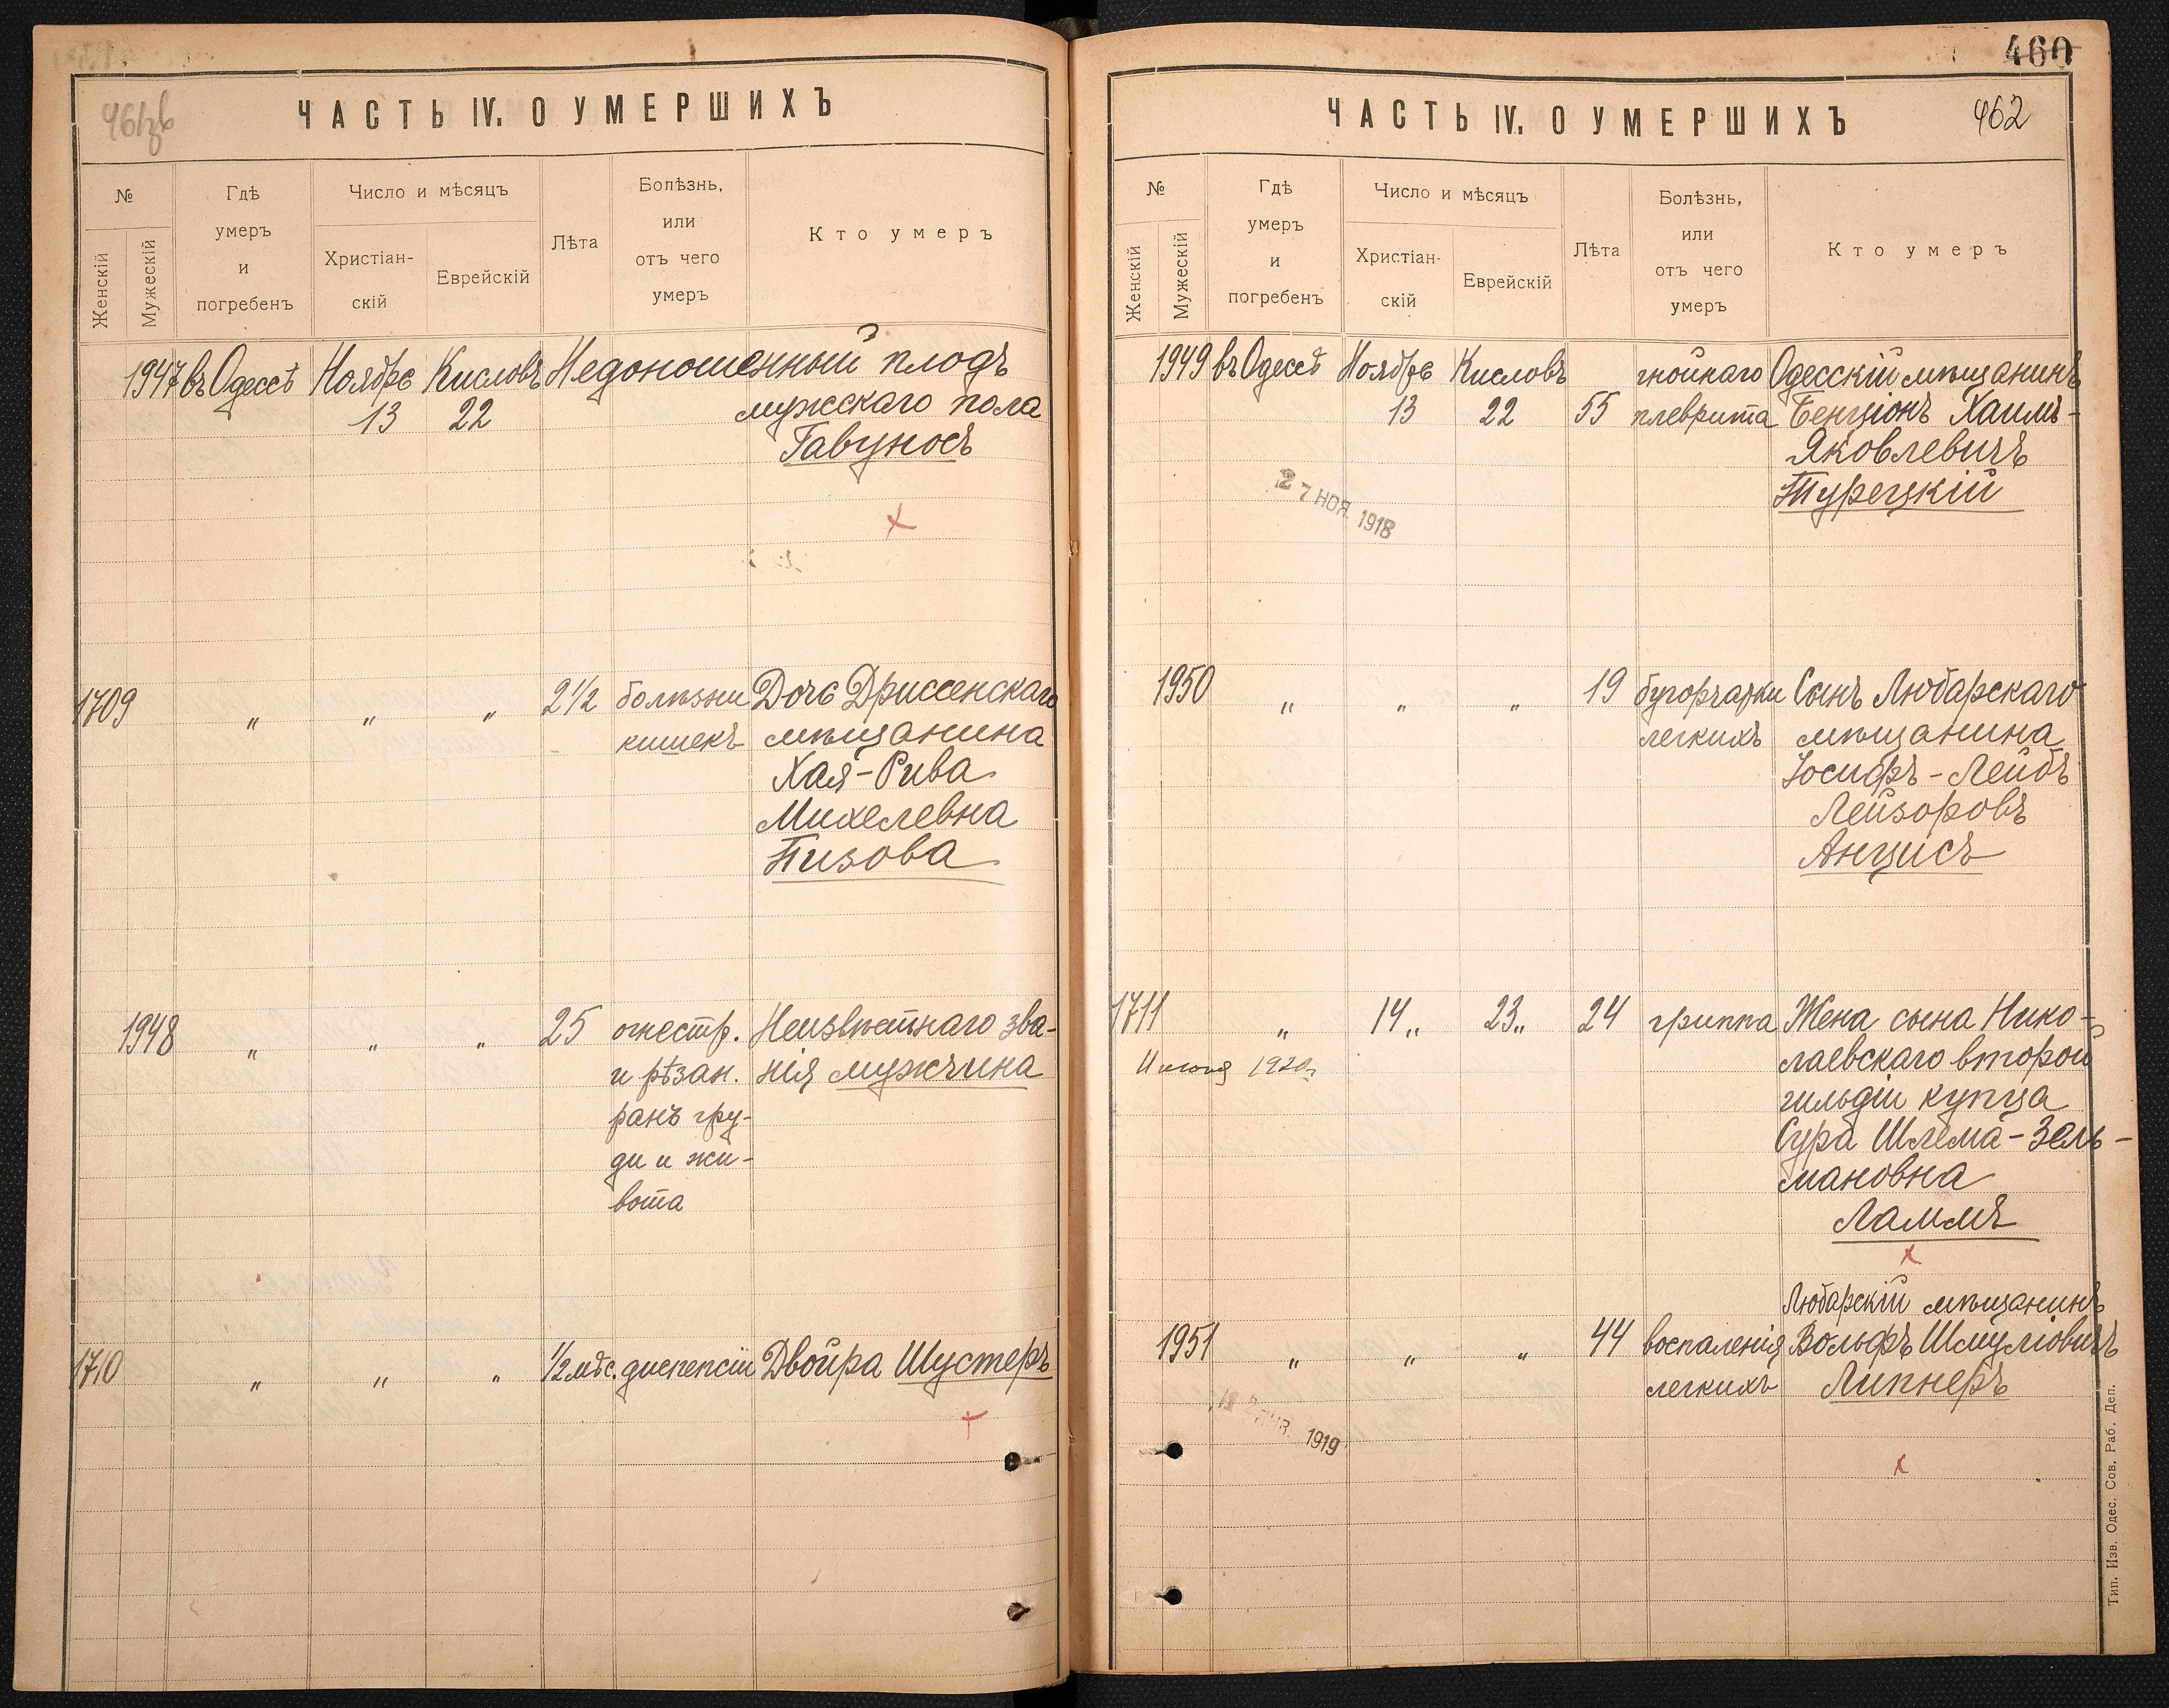 461об
ЧАСТЬ IV. О УМЕРШИХЪ
№
Женскій
Мужескій
Гдѣ
умеръ
и
погребенъ
Число и мѣсяцъ
Христіан-
скій
Еврейскій
Лѣта
Болѣзнь,
или
отъ чего
умеръ
Кто умеръ
1947 въ Одессѣ Ноября Кисловъ Недоношенный плодъ
13 22 мужскаго пола
Гавуносъ
1709 " " " 2 1/2 болѣзни Дочь Дриссенскаго
кишекъ мѣщанина
Хая-Рива
Михелевна
Пизова
1948 " " " 25 огнестр. Неизвѣстнаго зва-
и рѣзан. нія мужчина
ранъ гру-
ди и жи-
вота
1710 " " " 1/2 мѣс. диспепсіи Двойра Шустеръ
460
ЧАСТЬ IV. О УМЕРШИХЪ 462
№
Женскій
Мужескій
Гдѣ
умеръ
и
погребенъ
Число и мѣсяцъ
Христіан-
скій
Еврейскій
Лѣта
Болѣзнь,
или
отъ чего
умеръ
Кто умеръ
1949 въ Одессѣ Ноября Кисловъ гнойнаго Одесскій мѣщанинъ
13 22 55 плеврита Бенціонъ Хаимъ-
Яковлевичъ
Турецкій
27 НОЯ. 1918
1950 " " " 19 бугорчатки Сынъ Любарскаго
легкихъ мѣщанина
Іосифъ-Лейбъ
Лейзоровъ
Анцисъ
1711 " 14 " 23 " 24 гриппа Жена сына Нико-
1920 г. лаевскаго второй
гильдіи купца
Сура Шлема-Зель-
мановна
Ламмъ
Любарскій мѣщанинъ
1951 " " " 44 воспаленія Вольфъ Шмуліовичъ
легкихъ Липнеръ
1919
Тип. Изв. Одес. Сов. Раб. Деп.